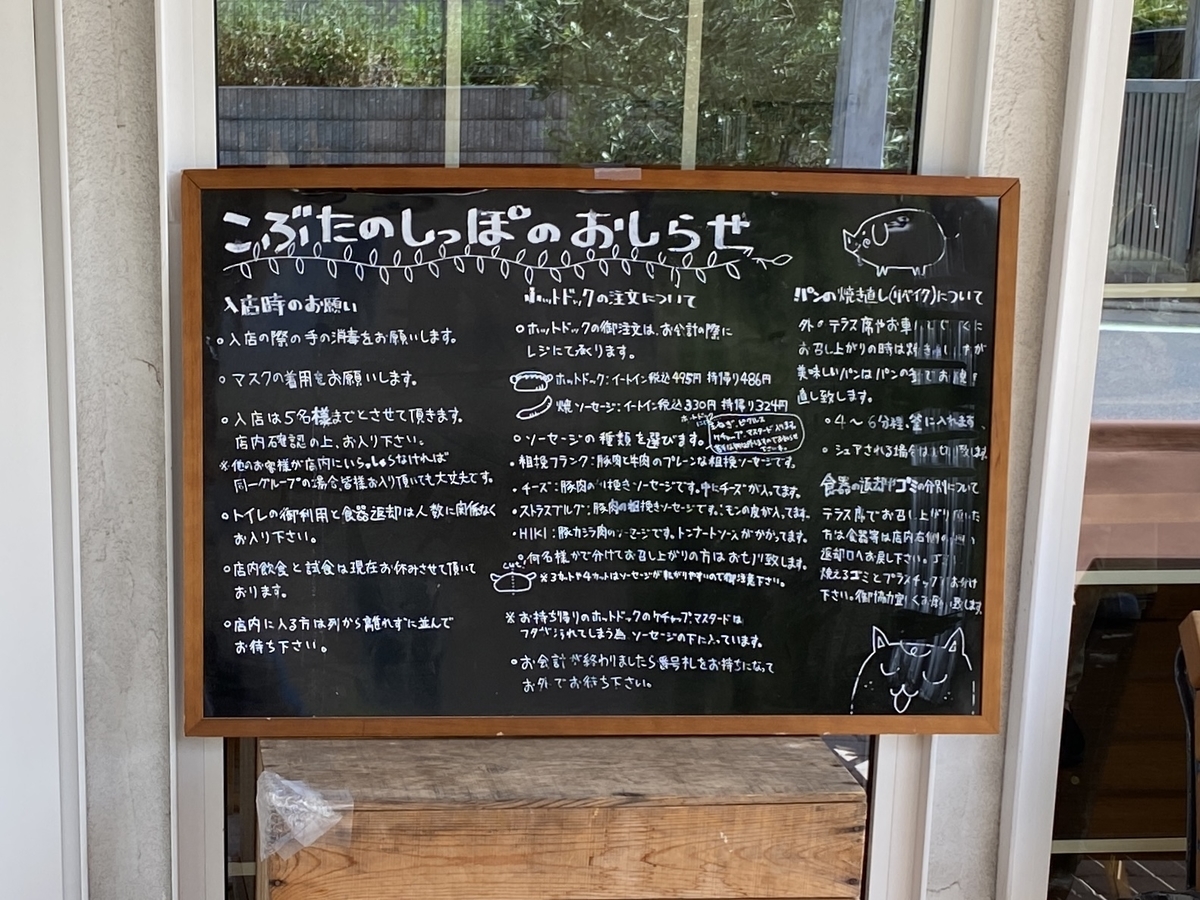 こぶたのしっぽのおしらせ
入店時のお願い
○入店の際の手の消毒をお願いします。
○マスクの着用をお願いします。
○入店は5名様までとさせて頂きます。
店内確認の上、お入り下さい。
※他のお客様が店内にいらっしゃらなければ
同一グループの場合、皆様お入り頂いても大丈夫です。
○トイレの御利用と食器返却は人数に関係なく
お入り下さい。
○店内飲食と試食は現在お休みさせて頂いて
おります。
○店内に入る方は列から離れずに並んで
お待ち下さい。
ホットドックの注文について
○ホットドックの御注文は、お会計の際に
レジにて承ります。
ホットドック:イートイン税込495円 持帰り486円
焼ソーセージ:イートイン税込330円 持帰り324円
○ソーセージの種類を選びます。
ホットドック
ピクルス
ケチャップ、マスタード入ってます
・粗挽フランク:豚肉と牛肉のプレーンな粗挽ソーセージです。
・チーズ:豚肉の 挽きソーセージです。中にチーズが入ってます。
・ストラスブルグ:豚肉の粗挽きソーセージです。 モンの皮が入ってます。
・HIKI:豚カシラ肉のソーセージです。トンナートソースがかかってます。
○何名様かで分けてお召し上がりの方はお 致します。
cut
※3カットや4カットはソーセージが転がりやすいので御注意下さい。
※お持ち帰りのホットドックのケチャップ、マスタードは
フタが汚れてしまう為 ソーセージの下に入っています。
○お会計が終わりましたら番号札をお持ちになって
お外でお待ち下さい。
パンの焼き直し(リベイク)について
外のテラス席やお車
お召し上がりの時は焼き
美味しいパンはパンの
直し致します。
○4～6分程、釜に入れます。
○シェアされる場合は 致します。
食器の返却やゴミの分別について
テラス席でお召し上がり頂いた
方は食器等は店内右側の
返却口へお戻し下さい。
燃えるゴミとプラスチック お分け
下さい。御協力宜しくお願い致します。